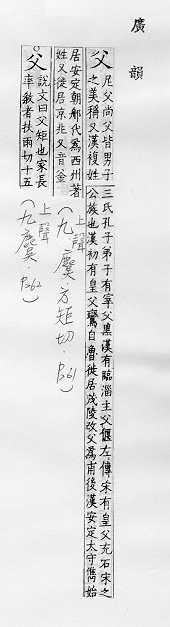 廣韻
父
尼父尚父皆男子
之美稱又漢複姓
三氏孔子弟子有宰父黑漢有臨淄主父偃左傳宋有皇父充石宋之
公族也漢初有皇父鸞自魯徙居茂陵改父為甫後漢安定太守儁始
居安定朝那代為西州著
姓又徙居京兆又音釜
上聲
(九麌·方矩切·P.261)
父
說文曰父矩也家長
率教者扶雨切十五
上聲
(九麌·P.262)